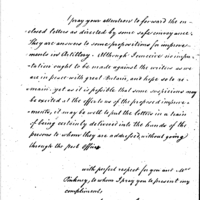 I pray your attentions to forward the in-
closed letters as directed by some safe conveyance.
They are answers to some propositions for improve-
ments in Artillery. Although I conceive no impu-
tation ought to be made against the writers as we
are in peace with great Britain, and hope so to re-
main. yet as it is possible that some suspicions may
be excited at the offer to us of the proposed improve-
ments, it may be well to put the letters in a train
of being certainly delivered into the hands of the
persons to whom they are addressed, without going
through the post office
with perfect respect for you and Mrs
Pinkney, to whom I pray you to present my
compliments